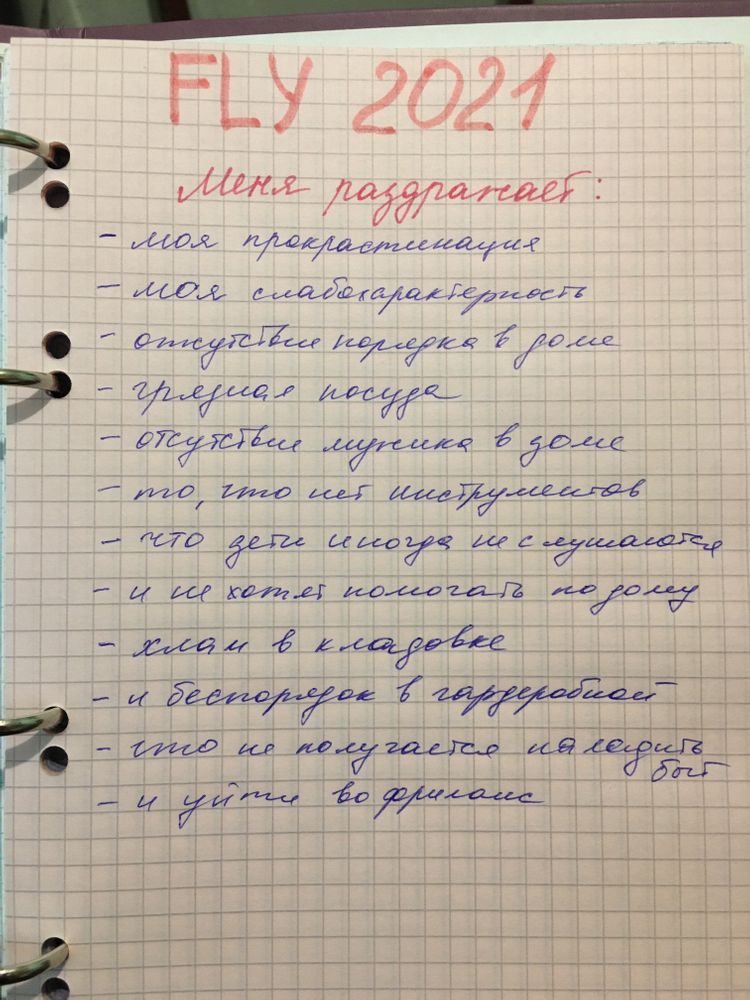 FLY 2021
Меня раздражает:
- моя прокрастинация
- моя слабохарактерность
- отсутствие порядка в доме
- грязная посуда
- отсутствие мужика в доме
- то, что нет инструментов
- что дети иногда не слушаются
- и не хотят помогать по дому
- хлам в кладовке
- и беспорядок в гардеробной
- что не получается наладить
быт
- и уйти во фриланс